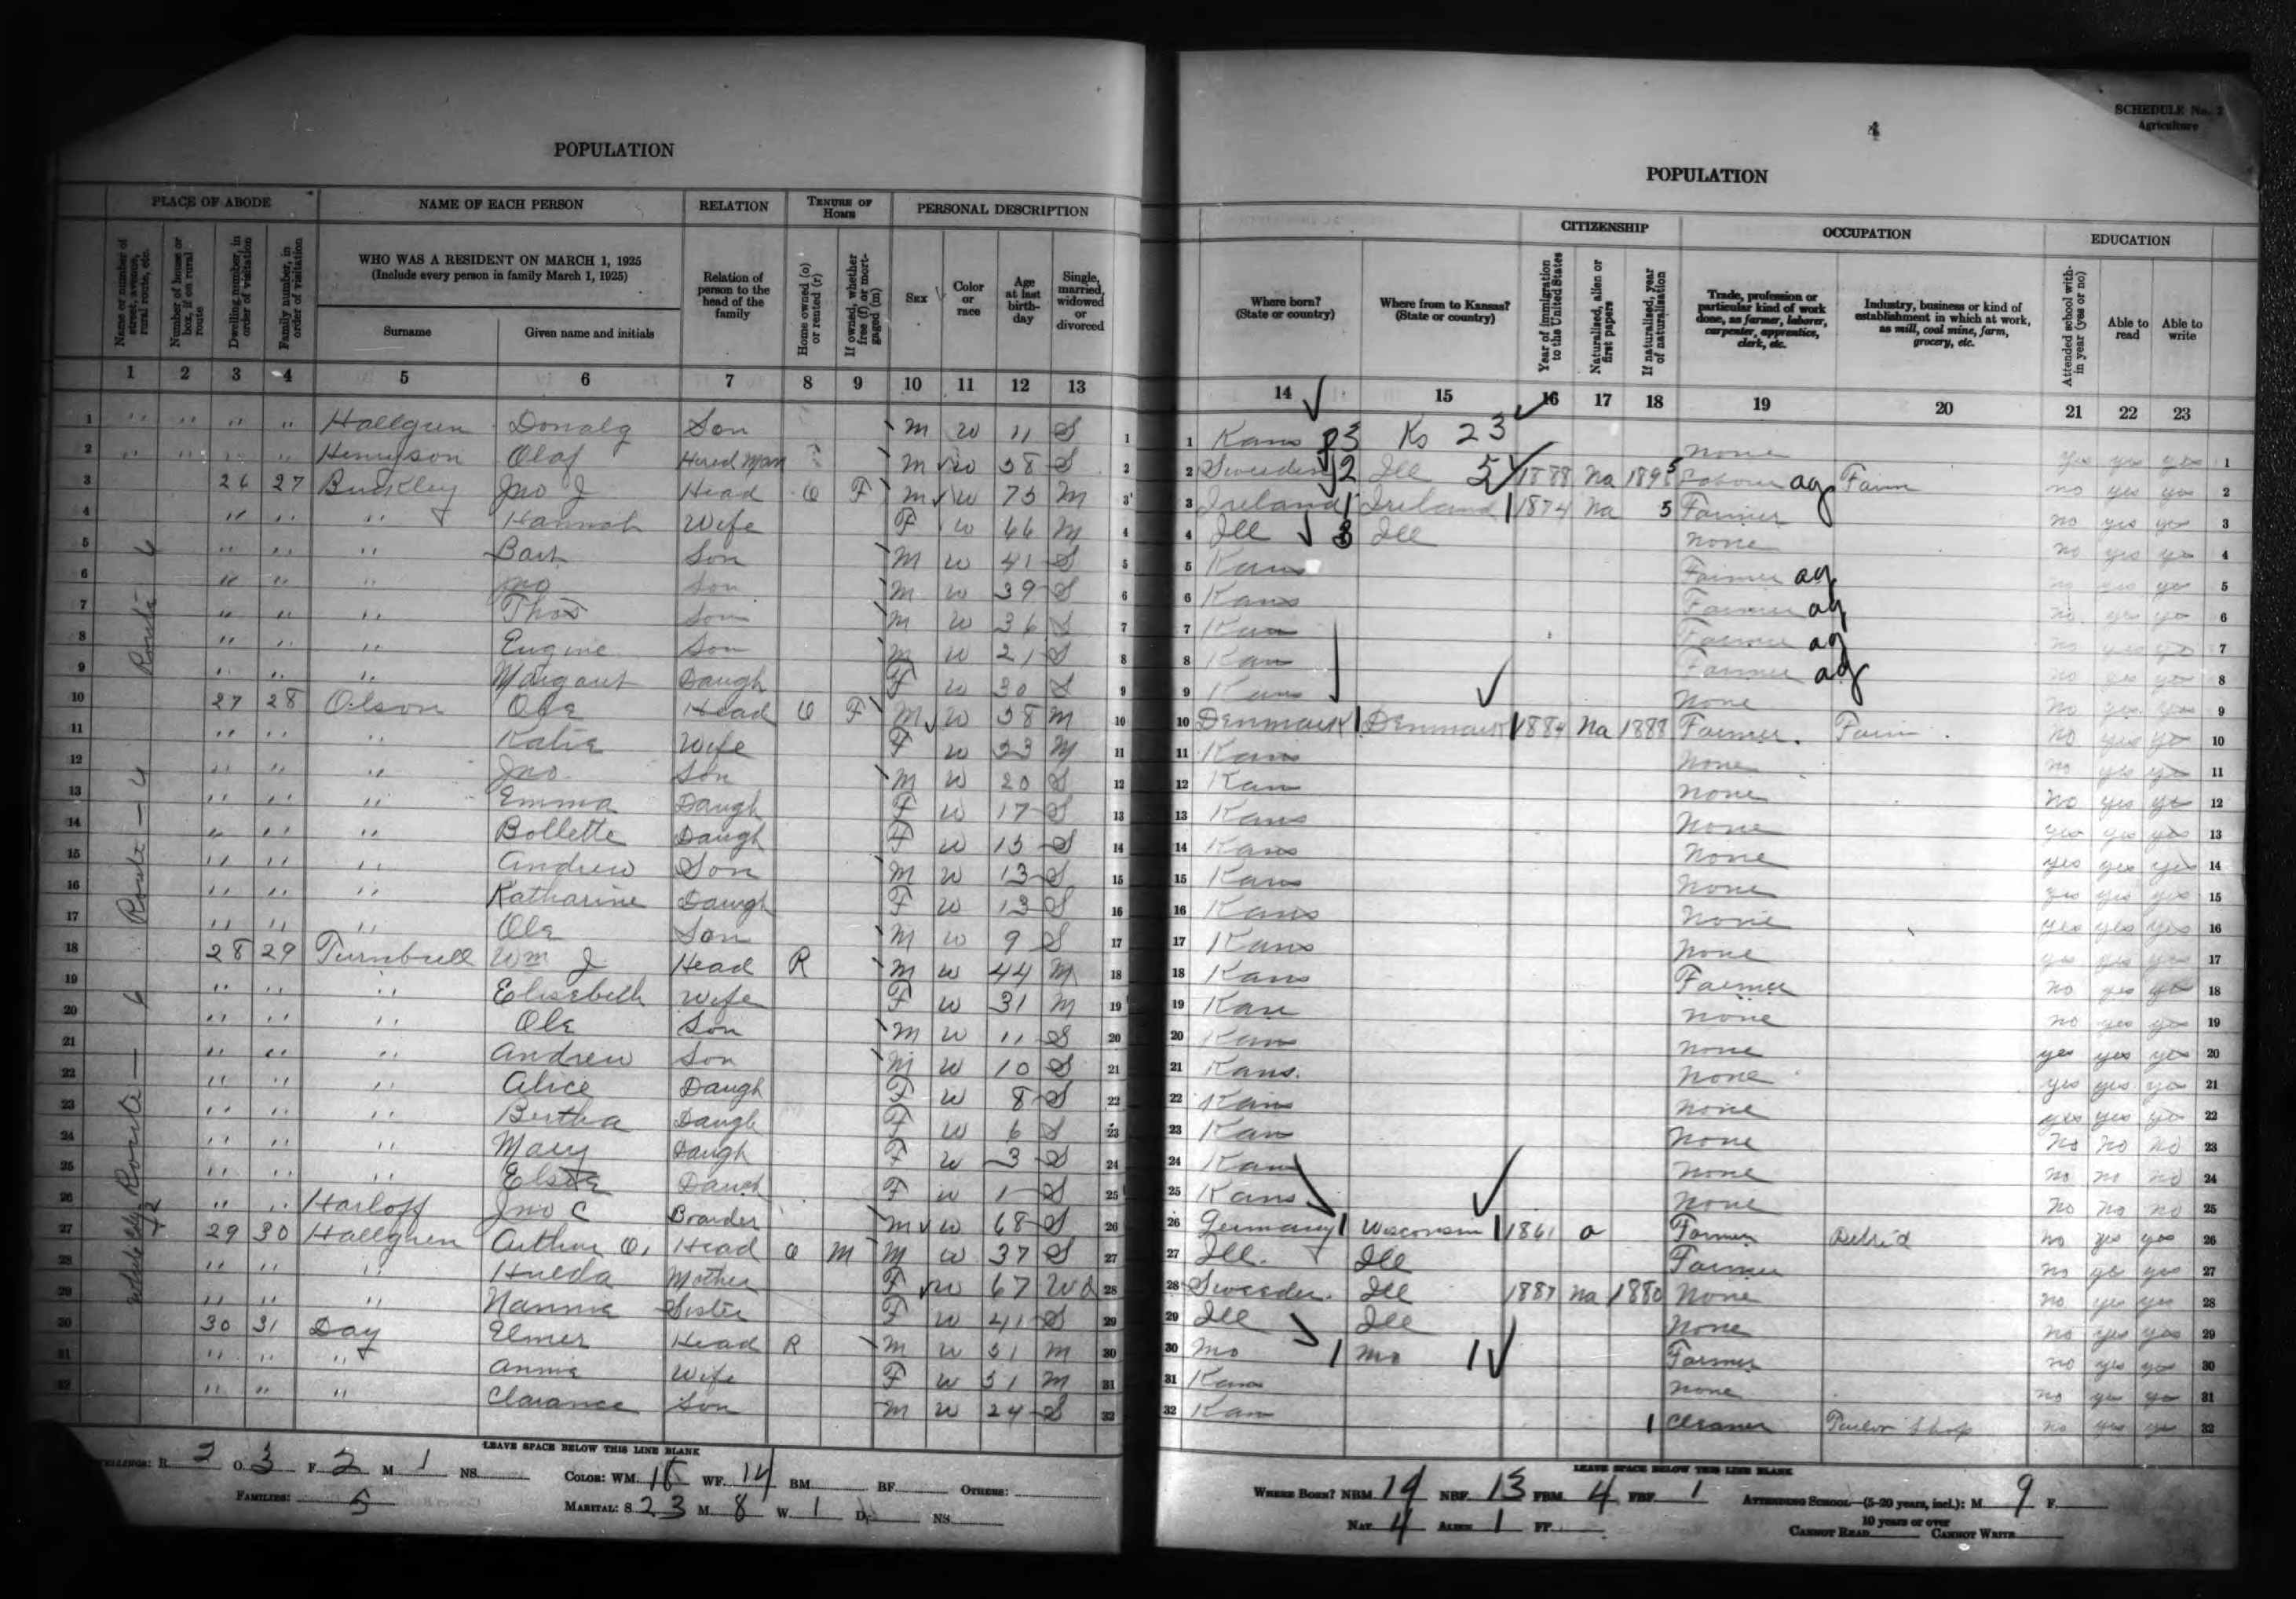 SCHEDULE No. 2
Agriculture
4
POPULATION
POPULATION
PLACE OF ABODE NAME OF EACH PERSON RELATION TENURE OF HOME PERSONAL DESCRIPTION
CITIZENSHIP OCCUPATION EDUCATION
Name or number of street, avenue, rural route, etc.
Number of house or box, if on rural route
Dwelling number, in order of visitation
Family number, in order of visitation
WHO WAS A RESIDENT ON MARCH 1, 1925
(Include every person in family March 1, 1925)
Surname Given name and initials
Relation of person to the head of the family
Home owned (o) or rented (r)
If owned, whether free (f) or mortgaged (m)
Sex
Color or race
Age at last birthday
Single, married, widowed or divorced
Where born? (State or country)
Where from to Kansas? (State or country)
Year of immigration to the United States
Naturalized, alien or first papers
If naturalized, year of naturalization
Trade, profession or particular kind of work done, as farmer, laborer, carpenter, apprentice, clerk, etc.
Industry, business or kind of establishment in which at work, as mill, coal mine, farm, grocery, etc.
Attended school within year (yes or no)
Able to read
Able to write
1 2 3 4 5 6 7 8 9 10 11 12 13
14 15 16 17 18 19 20 21 22 23
Route 6
Route - 6
Route - 6
1 " " " " Hallgren Donald Son M W 11 S 1 Kans Ks 23 none yes yes yes 1
2 " " " " Olof Hired Man M W 58 S 2 Sweden 2 Ill 5 1888 Na 1895 ag Farm no yes yes 2
3 26 27 Buckley Jno J Head O F M W 75 M 3 Ireland 1 Ireland 1 1874 Na 5 Farmer no yes yes 3
4 " " " Hannah Wife F W 66 M 4 Ill 3 Ill none no yes yes 4
5 " " " Bart Son M W 41 S 5 Kans Farmer ag no yes yes 5
6 " " " Jno Son M W 39 S 6 Kans Farmer ag no yes yes 6
7 " " " Thos Son M W 36 S 7 Kan Farmer ag no yes yes 7
8 " " " Eugine Son M W 21 S 8 Kan Farmer ag no yes yes 8
9 " " " Margaut Daugh F W 30 S 9 Kans None no yes yes 9
10 27 28 Olson Ole Head O F M W 58 M 10 Denmark 1 Denmark 1 1884 Na 1888 Farmer. Farm no yes yes 10
11 " " " Katie Wife F W 53 M 11 Kans None no yes yes 11
12 " " " Jno. Son M W 20 S 12 Kan none no yes yes 12
13 " " " Emma Daugh F W 17 S 13 Kans None yes yes yes 13
14 " " " Bollette Daugh F W 15 S 14 Kans None yes yes yes 14
15 " " " Andrew Son M W 13 S 15 Kans None yes yes yes 15
16 " " " Katharine Daugh F W 13 S 16 Kans None yes yes yes 16
17 " " " Ole Son M W 9 S 17 Kans None yes yes yes 17
18 28 29 Turnbull Wm J Head R M W 44 M 18 Kans Farmer no yes yes 18
19 " " " Elisebeth Wife F W 31 M 19 Kan none no yes yes 19
20 " " " Ole Son M W 11 S 20 Kans none yes yes yes 20
21 " " " Andrew Son M W 10 S 21 Kans. none yes yes yes 21
22 " " " Alice Daugh F W 8 S 22 Kans none yes yes yes 22
23 " " " Bertha Daugh F W 6 S 23 Kan none no no no 23
24 " " " Mary Daugh F W 3 S 24 Kan none no no no 24
25 " " " Elsie Daugh F W 1 S 25 Kans none no no no 25
26 " " Harloff Jno C Boarder M W 68 S 26 Germany 1 Wisconsin 1 1861 a Farmer no yes yes 26
27 29 30 Hallgren Arthur O. Head O M M W 37 S 27 Ill. Ill Farmer no yes yes 27
28 " " " Hulda Mother F W 67 Wd 28 Sweeden. Ill 1887 Na 1880 None no yes yes 28
29 " " " Nannie Sister F W 41 S 29 Ill Ill None no yes yes 29
30 30 31 Day Elmer Head R M W 51 M 30 Mo 1 Mo 1 Farmer no yes yes 30
31 " " " Annie Wife F W 51 M 31 Kans none no yes yes 31
32 " " " Clarance Son M W 24 S 32 Kan 1 Cleaner Shop no yes yes 32
LEAVE SPACE BELOW THIS LINE BLANK
DWELLINGS: R. 2 O. 3 F. 2 M. 1 NS. COLOR: WM. 18 WF. 14 BM. BF. OTHERS:
FAMILIES: 5 MARITAL: S 23 M. 8 W. 1 D. NS.
LEAVE SPACE BELOW THIS LINE BLANK
WHERE BORN? NBM. 14 NBF. 13 FBM. 4 FBF. 1 ATTENDING SCHOOL—(5-20 years, incl.): M. 9 F.
NAT. 4 ALIEN 1 FP. 10 years or over
CANNOT READ CANNOT WRITE